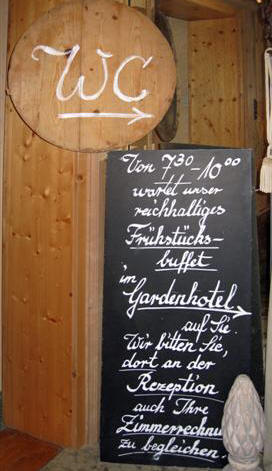 WC
Von 7³⁰-10⁰⁰
wartet unser
reichhaltiges
Frühstücks-
buffet
im
Gardenhotel
auf Sie.
Wir bitten Sie,
dort an der
Rezeption
auch Ihre
Zimmerrechnu
zu begleichen.